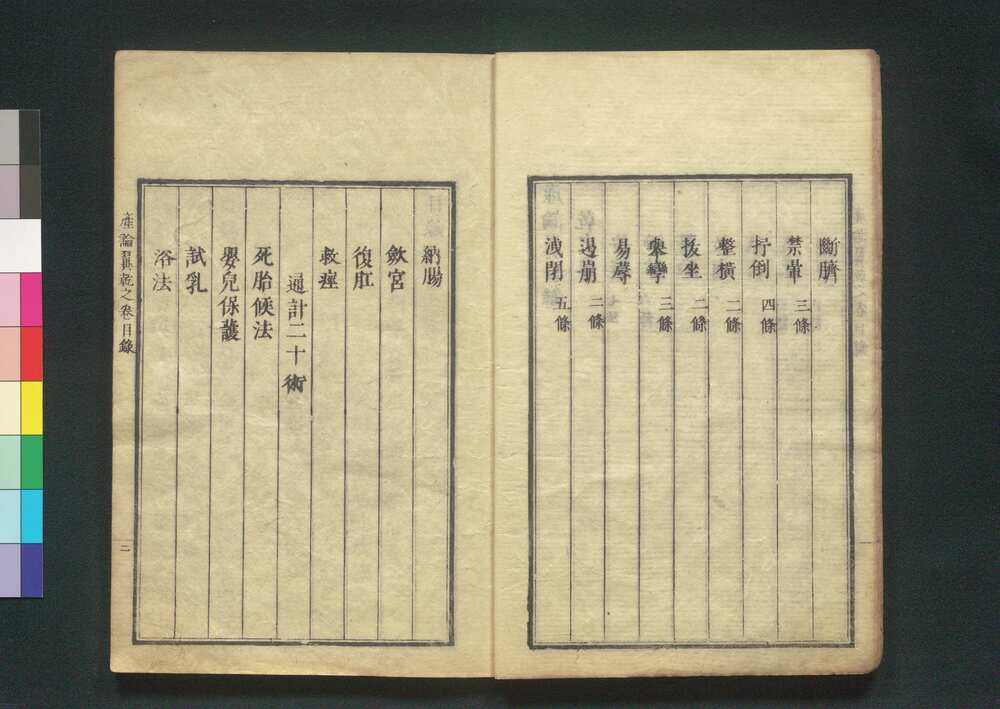 斷臍
禁暈 三條
抒倒 四條
整橫 二條
拔坐 二條
舉攣 三條
易蓐
遏崩 二條
洩閉 五條
納腸
斂宮
復肛
救痙
通計二十術
死胎候法
嬰兒保護
試乳
浴法
產論翼乾之卷目錄
二